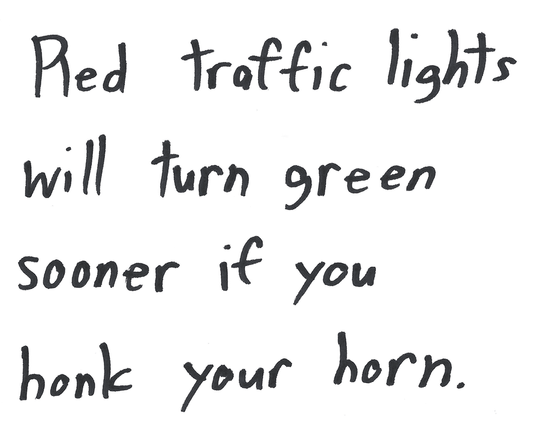 Red traffic lights
will turn green
sooner if you
honk your horn.